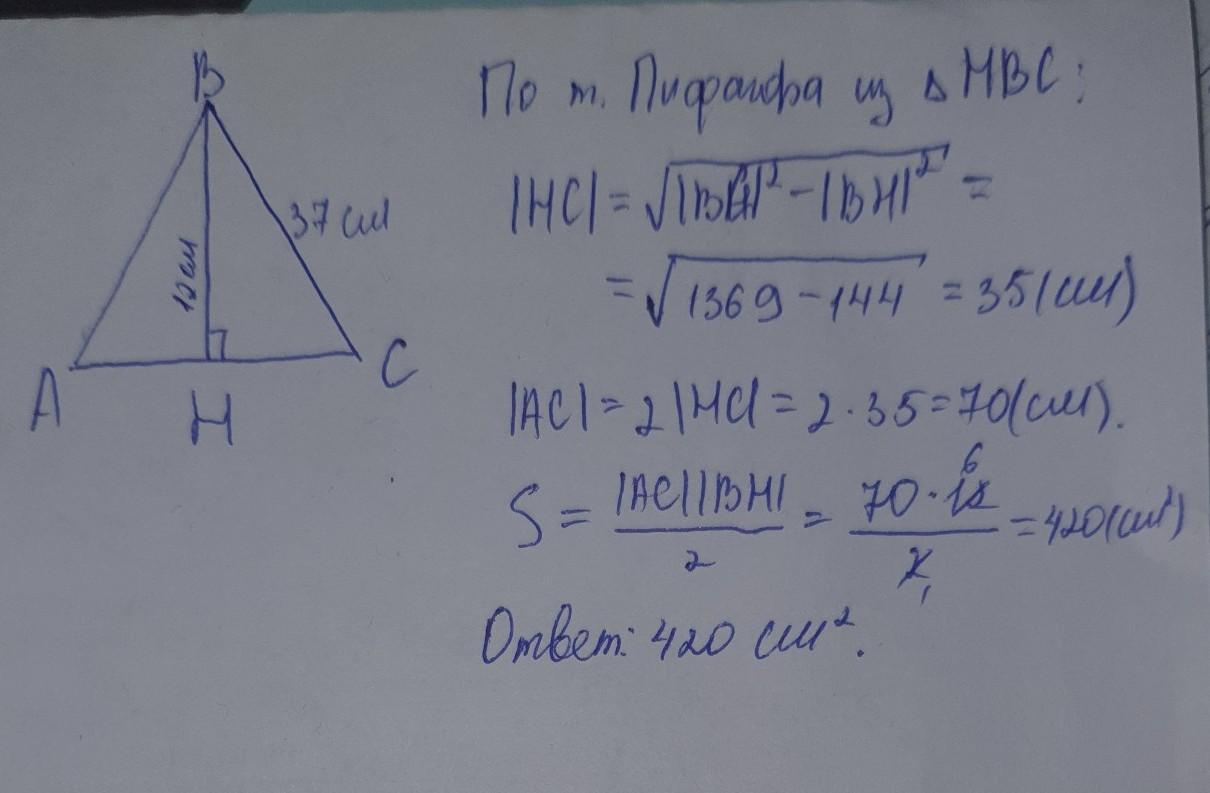 B
37 см
12 см
A
H
C
По т. Пифагора из △ HBC:
|HC| = √|BC|² - |BH|² =
= √1369 - 144 = 35 (см)
|AC| = 2 |HC| = 2 · 35 = 70 (см).
S = |AC||BH| / 2 = 70 · 12 6 / 2 1 = 420 (см²)
Ответ: 420 см².